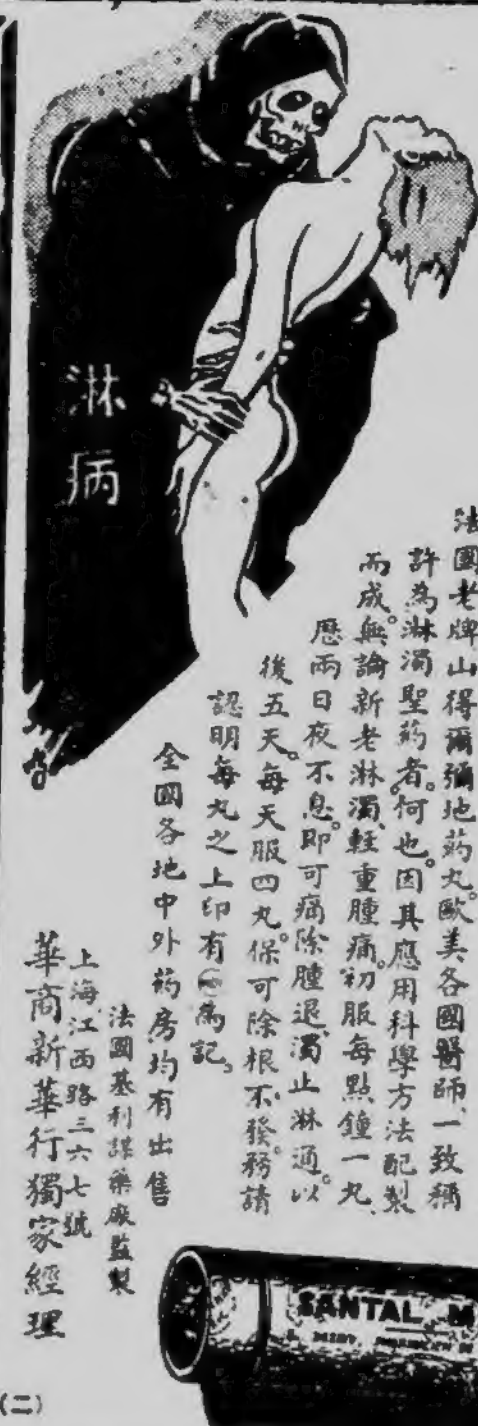 淋病
法國老牌山得爾彌地葯丸。歐美各國醫師、一致稱
許為淋濁聖葯者。何也。因其應用科學方法配製
而成。無論新老淋濁、輕重腫痛。初服每點鐘一丸、
歷兩日夜不息。即可痛除腫退、濁止淋通。以
後五天。每天服四丸。保可除根不發。務請
認明每丸之上印有 為記。
全國各地中外葯房均有出售
法國基利謀藥廠監製
上海江西路三六七號
華商新華行獨家經理
SANTAL M
L. MIDY
(二)